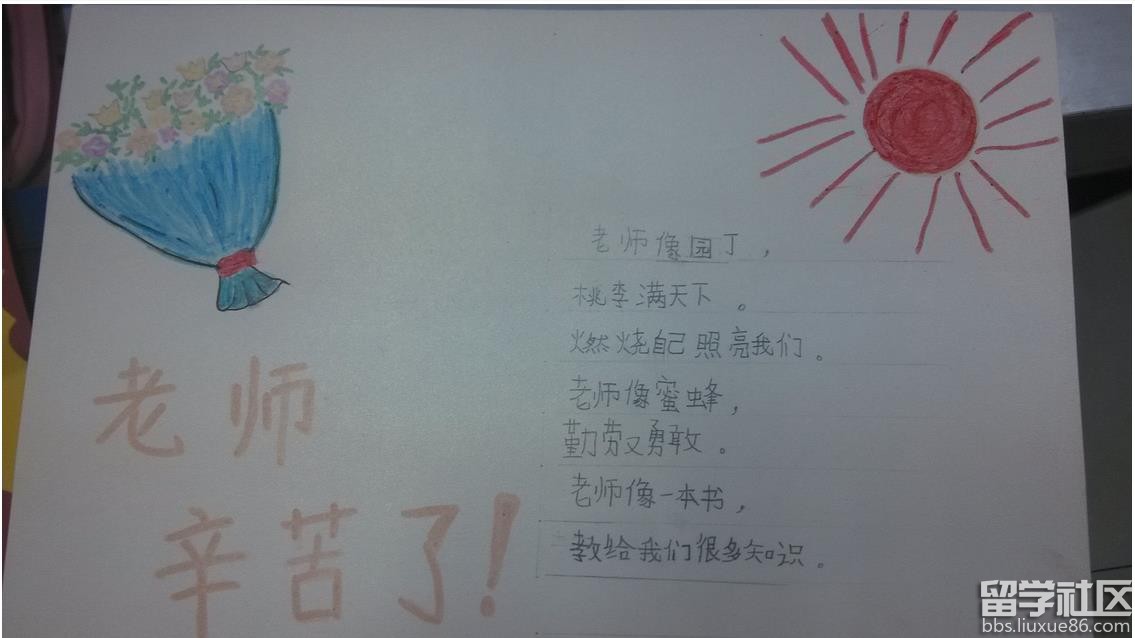 老师
辛苦了!
老师像园丁，
桃李满天下。
燃烧自己照亮我们。
老师像蜜蜂，
勤劳又勇敢。
老师像一本书，
教给我们很多知识。
留学社区
bbs.liuxue86.com